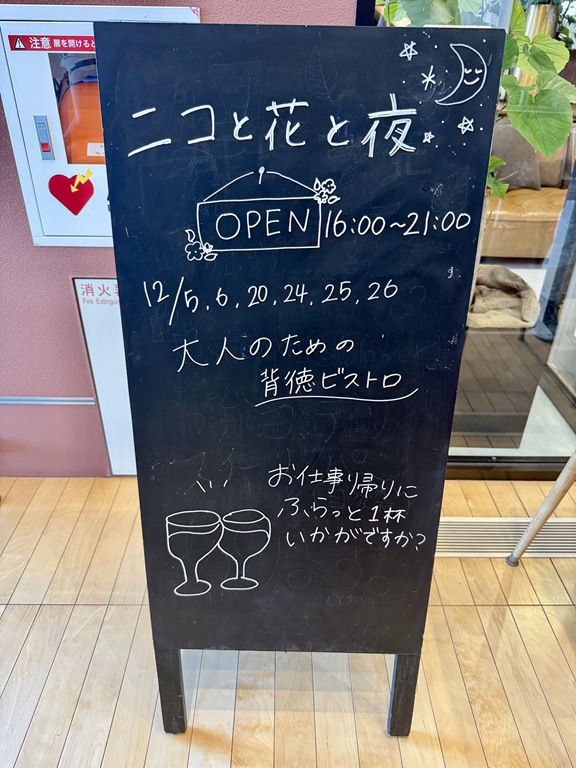 注意 扉を開けると
消火器
Fire Extingui
ニコと花と夜
OPEN 16:00~21:00
12/5, 6, 20, 24, 25, 26
大人のための
背徳ビストロ
お仕事り帰りに
ふらっと1杯
いかがですか?